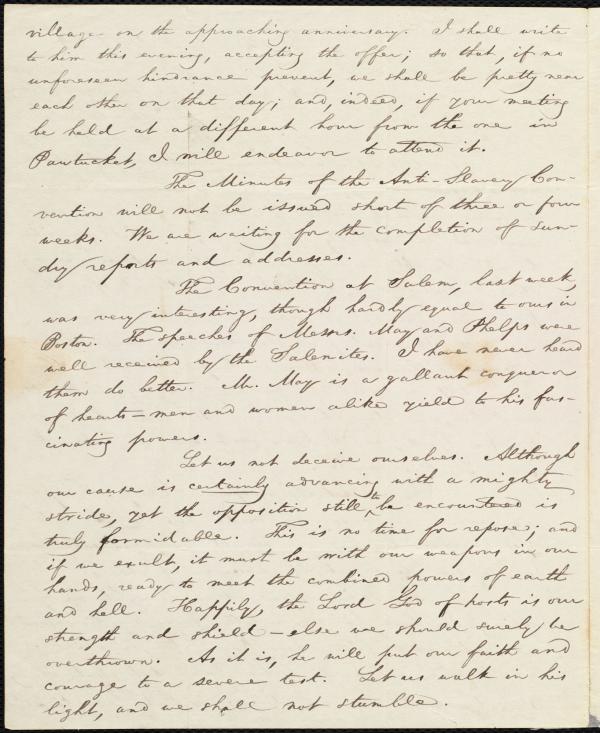 village on the approaching anniversary. I shall write
to him this evening, accepting the offer; so that, if no
unforeseen hindrance prevent, we shall be pretty near
each other on that day; and, indeed, if your meeting
be held at a different hour from the one in
Pawtucket, I will endeavor to attend it.
The Minutes of the Anti-Slavery Con-
vention will not be issued short of three or four
weeks. We are waiting for the completion of sun-
dry reports and addresses.
The Convention at Salem, last week,
was very interesting, though hardly equal to ours in
Boston. The speeches of Messrs. May and Phelps were
well received by the Salemites. I have never heard
them do better. Mr. May is a gallant conqueror
of hearts—men and women alike yield to his fas-
cinating powers.
Let us not deceive ourselves. Although
our cause is certainly advancing with a mighty
stride, yet the opposition still to be encountered is
truly formidable. This is no time for repose; and
if we exult, it must be with our weapons in our
hands, ready to meet the combined powers of earth
and hell. Happily, the Lord God of hosts is our
strength and shield—else we should surely be
overthrown. As it is, he will put our faith and
courage to a severe test. Let us walk in his
light, and we shall not stumble.